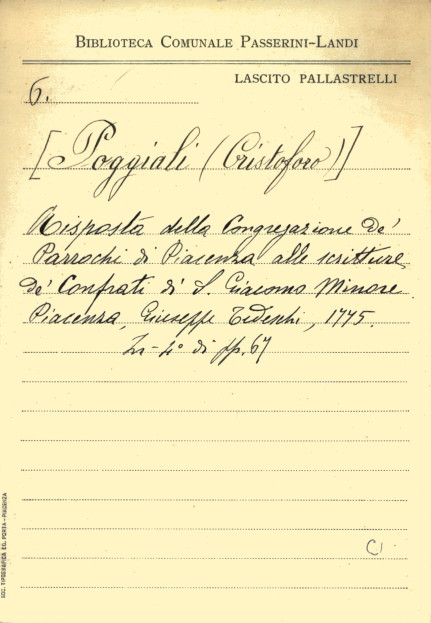 BIBLIOTECA COMUNALE PASSERINI-LANDI
LASCITO PALLASTRELLI
6.
[Poggiali (Cristoforo)]
Risposta della Congregazione de'
Parrochi di Piacenza alle scritture
de' Confrati di S. Giacomo Minore.
Piacenza, Giuseppe Tedeschi, 1775.
In-4° di pp. 67
C1
SOC. TIPOGRAFICA ED. PORTA - PIACENZA